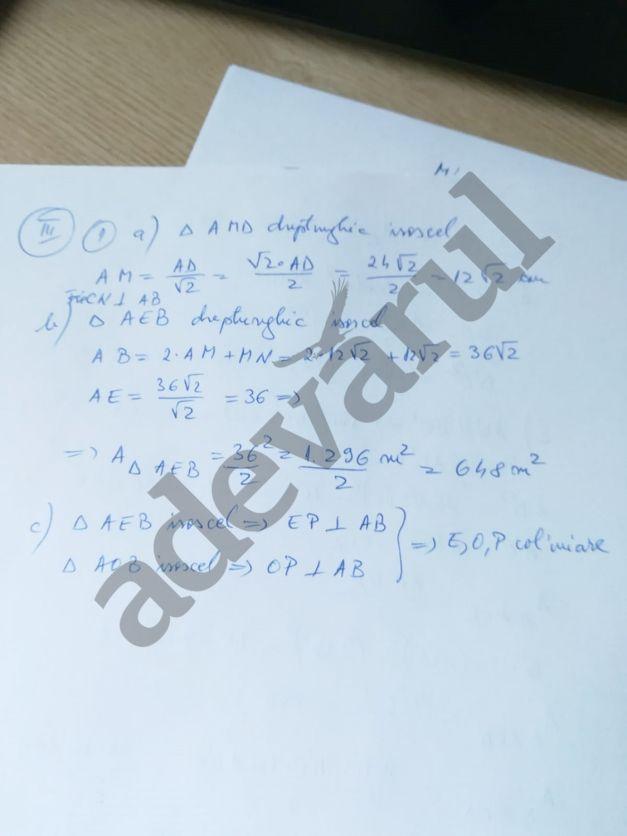 M
III 1 a) △ AMD dreptunghic isoscel
AM = AD/√2 = √2·AD/2 = 24√2/2 = 12√2 cm
Fie CN ⊥ AB
b) △ AEB dreptunghic isoscel
AB = 2·AM + MN = 2·12√2 + 12√2 = 36√2
AE = 36√2/√2 = 36 =>
=> A△AEB = 36²/2 = 1.296/2 m² = 648 m²
c) △ AEB isoscel => EP ⊥ AB
△ AOB isoscel => OP ⊥ AB } => E, O, P coliniare
adevărul